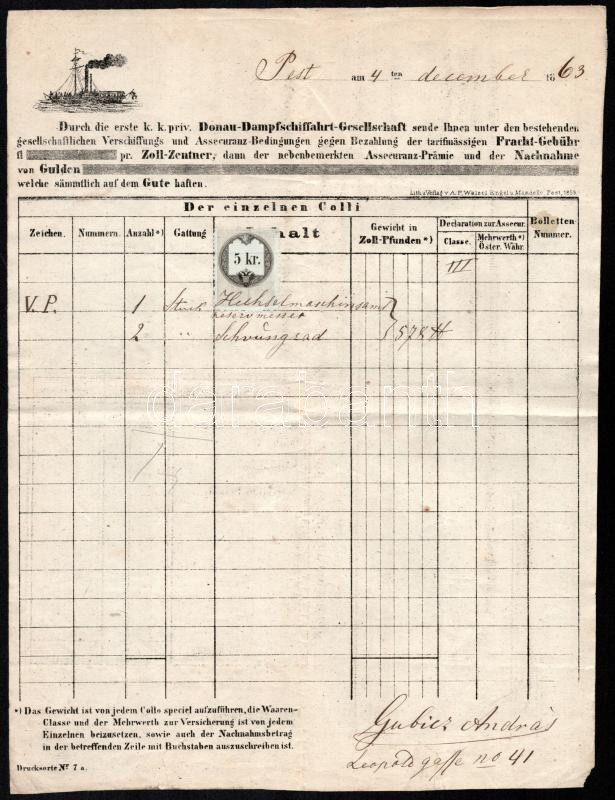 Pest am 4 ten december 1863
Durch die erste k. k. priv. Donau-Dampfschiffahrt-Gesellschaft sende Ihnen unter den bestehenden
gesellschaftlichen Verschiffungs und Assecuranz-Bedingungen gegen Bezahlung der tarifmässigen Fracht-Gebühr
fl pr. Zoll-Zentner, dann der nebenbemerkten Assecuranz-Prämie und der Nachnahme
von Gulden
welche sämmtlich auf dem Gute haften.
Lith. u. Verlag v. A. F. Walzel Engel u. Mandello, Pest, 1859.
Der einzelnen Colli
Zeichen. Nummern. Anzahl *) Gattung Inhalt Gewicht in Zoll-Pfunden *) Declaration zur Assecur. Classe. Mehrwerth *) Österr. Währ. Bolletten-Nummer.
5 kr.
III
V. P. 1 Stück Hechselmaschin samt
reservmesser
2 " Schwungrad 578 ℔
darabanth
*) Das Gewicht ist von jedem Collo speciel aufzuführen, die Waaren-
Classe und der Mehrwerth zur Versicherung ist von jedem
Einzelnen beizusetzen, sowie auch der Nachnahmsbetrag
in der betreffenden Zeile mit Buchstaben auszuschreiben ist.
Drucksorte No 7 a.
Gubicz András
Leopoldgasse no 41